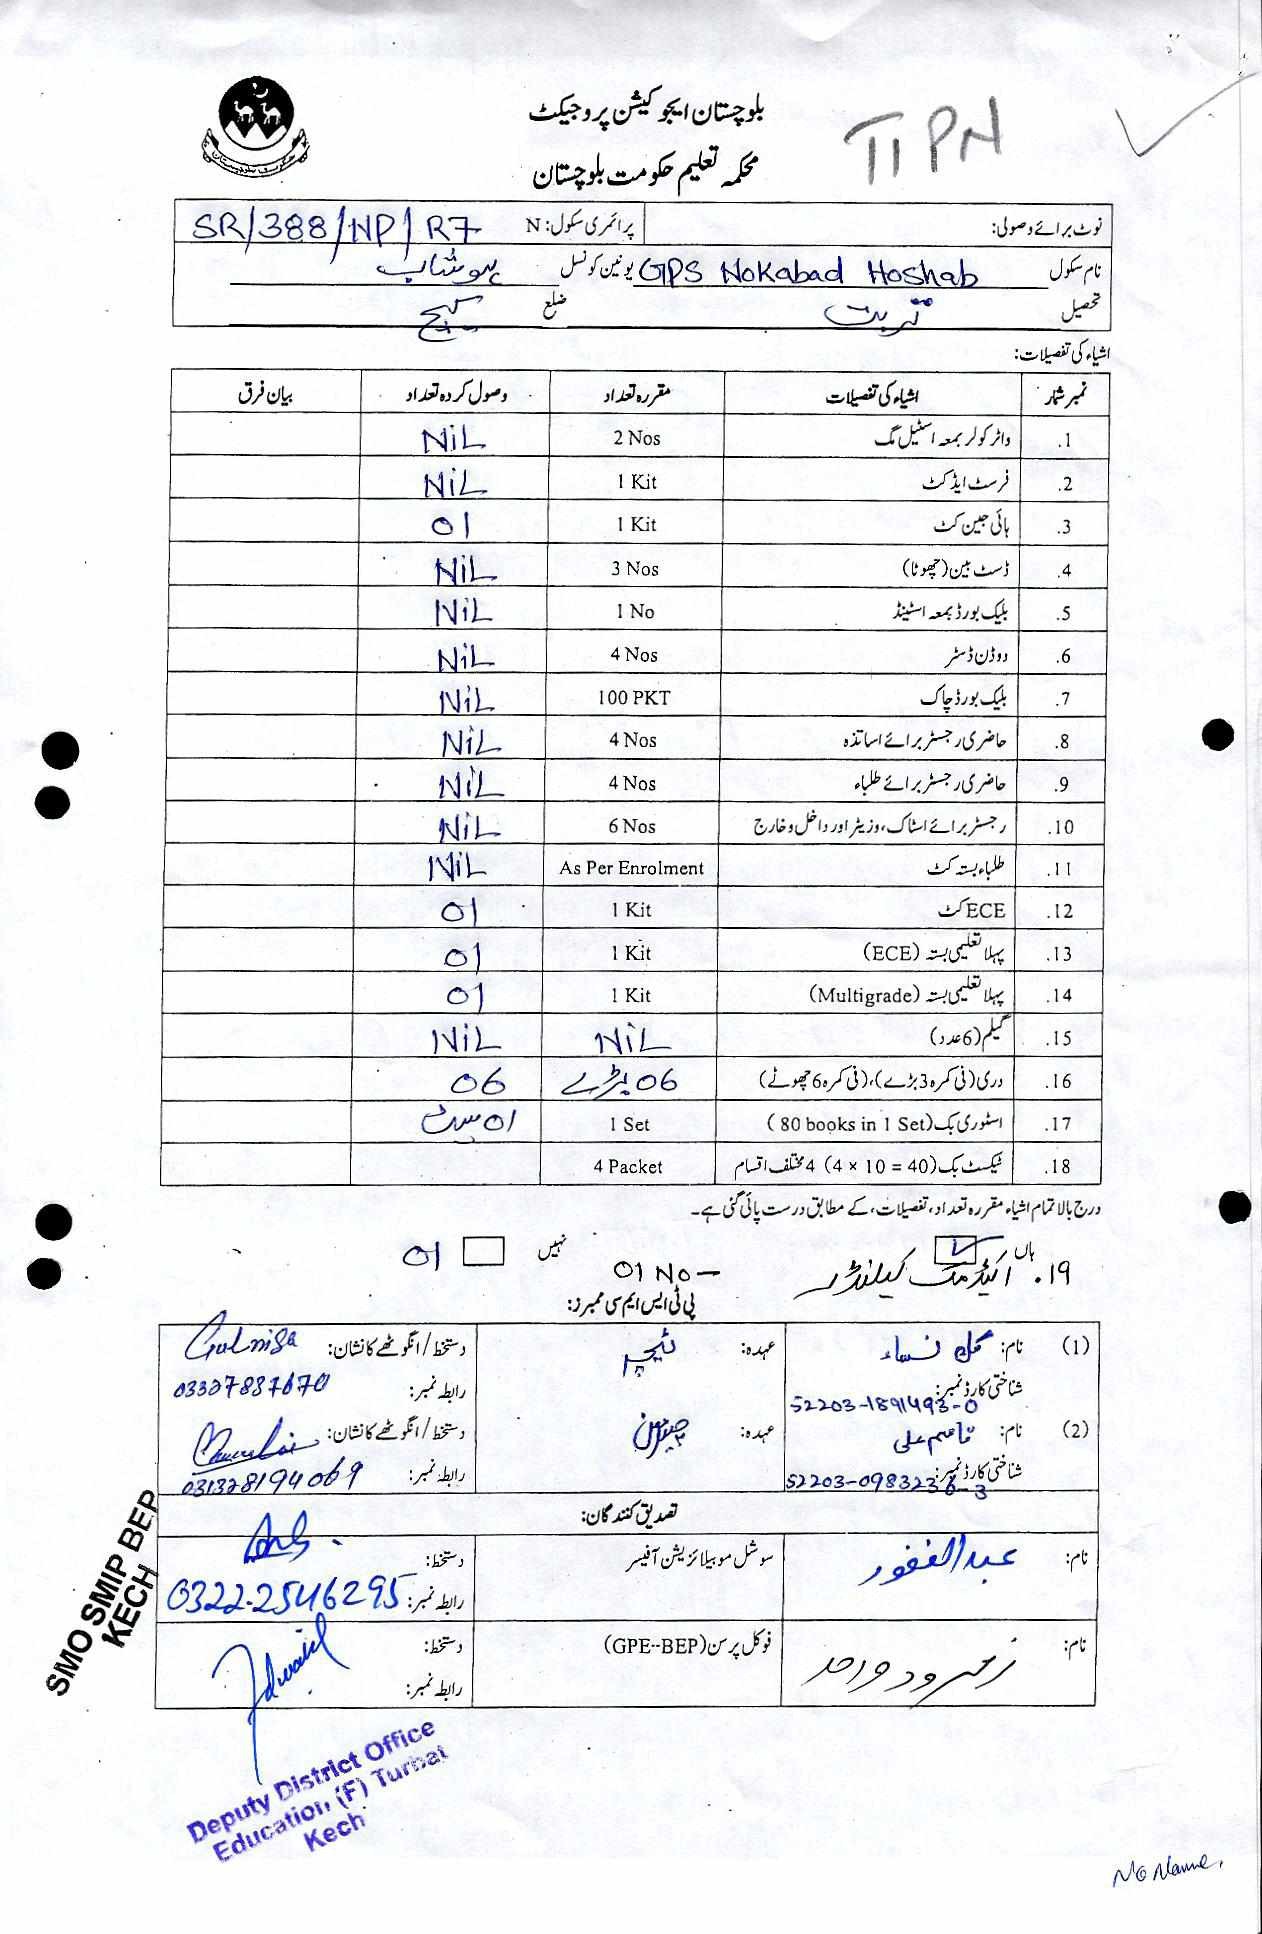 بلوچستان ایجوکیشن پروجیکٹ
TIPN
محکمہ تعلیم حکومت بلوچستان
نوٹ برائے وصولی: پرائمری سکول: N SR/388/NP/R7
نام سکول GPS Nokabad Hoshab یونین کونسل ہوشاب
تحصیل تربت ضلع کیچ
اشیاء کی تفصیلات:
نمبر شمار اشیاء کی تفصیلات مقررہ تعداد وصول کردہ تعداد بیان فرق
1. واٹر کولر بمعہ اسٹیل مگ 2 Nos NiL
2. فرسٹ ایڈ کٹ 1 Kit NiL
3. ہائی جین کٹ 1 Kit 01
4. ڈسٹ بین (چھوٹا) 3 Nos NiL
5. بلیک بورڈ بمعہ اسٹینڈ 1 No NiL
6. ووڈن ڈسٹر 4 Nos NiL
7. بلیک بورڈ چاک 100 PKT NiL
8. حاضری رجسٹر برائے اساتذہ 4 Nos NiL
9. حاضری رجسٹر برائے طلباء 4 Nos NiL
10. رجسٹر برائے اسٹاک، وزیٹر اور داخل و خارج 6 Nos NiL
11. طلباء بستہ کٹ As Per Enrolment NiL
12. ECE کٹ 1 Kit 01
13. پہلا تعلیمی بستہ (ECE) 1 Kit 01
14. پہلا تعلیمی بستہ (Multigrade) 1 Kit 01
15. گیلم (6 عدد) NiL NiL
16. دری (فی کمرہ 3 بڑے)، (فی کمرہ 6 چھوٹے) 06 بڑے 06
17. اسٹوری بک (80 books in 1 Set) 1 Set 01 سیٹ
18. ٹیکسٹ بک (4 × 10 = 40) 4 مختلف اقسام 4 Packet
درج بالا تمام اشیاء مقررہ تعداد، تفصیلات، کے مطابق درست پائی گئی ہے۔
ہاں نہیں
19. اکیڈمک کیلنڈر 01 No - 01
پی ٹی ایس ایم سی ممبرز:
(1) نام: گل نساء عہدہ: ٹیچر دستخط / انگوٹھے کا نشان: Gulnisa
شناختی کارڈ نمبر: 52203-1891493-0 رابطہ نمبر: 03327887670
(2) نام: قاسم علی عہدہ: چیئرمین دستخط / انگوٹھے کا نشان:
شناختی کارڈ نمبر: 52203-0983236-3 رابطہ نمبر: 031328194069
تصدیق کنندگان:
نام: عبدالغفور سوشل موبیلائزیشن آفیسر دستخط:
رابطہ نمبر: 0322-2546295
نام: زمرود واحد فوکل پرسن (GPE--BEP) دستخط:
رابطہ نمبر:
SMO SMIP BEP
KECH
Deputy District Office
Education, (F) Turbat
Kech
No Name,